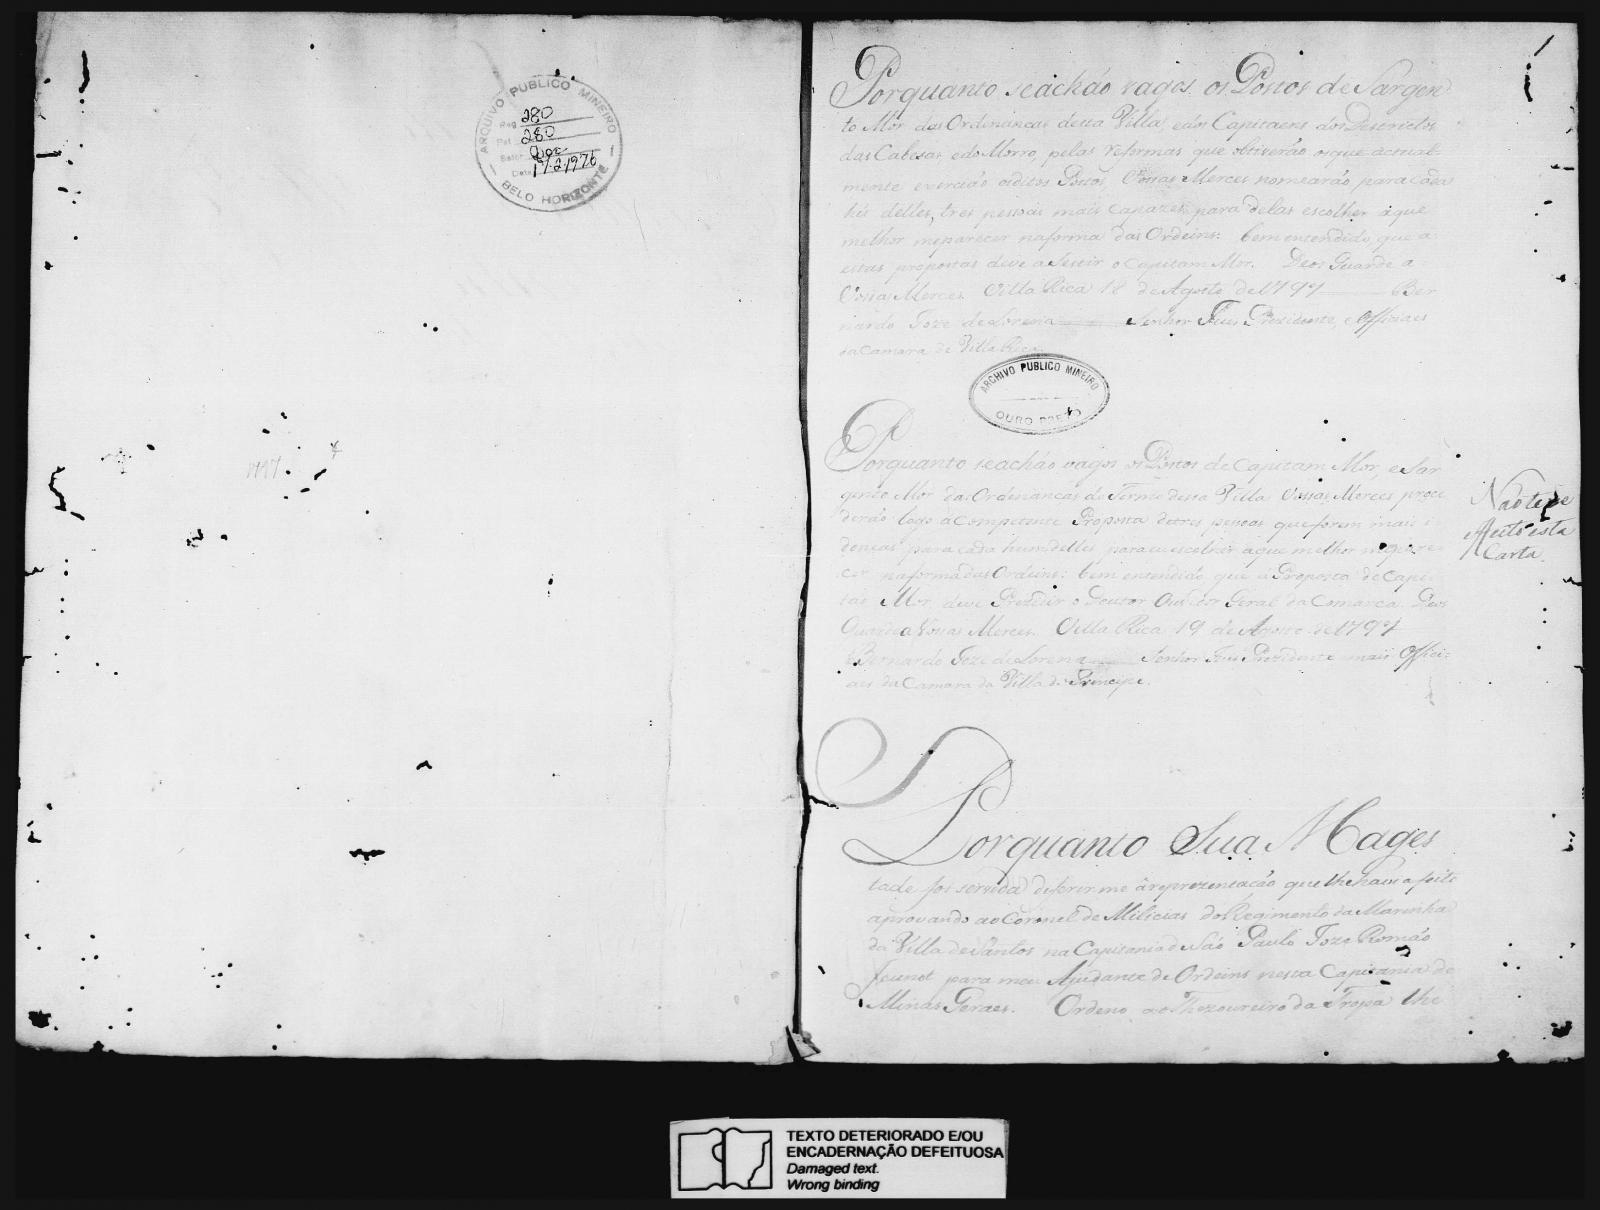 ARQUIVO PUBLICO MINEIRO
Reg 280
Pat 280
Setor Doc
Data 17.2.1976
BELO HORIZONTE
1797
1
Porquanto seachão vagos os Postos de Sargen
to Mór das Ordenanças desta Villa, edos Capitaens dos Destrictos
das Cabesas, edo Morro, pelas reformas que obtiverão osque actual
mente exercião osditos Postos, Vossas Merces nomearão para cada
hũ delles, tres pessoas mais capazes, para delas escolher aque
melhor meparecer naforma das Ordeins: bem entendido, que a
estas propostas deve aSestir o Capitam Mor. Deos Guarde a
Vossas Merces. Villa Rica 18 de Agosto de 1797 Ber
nardo Joze de Lorena Senhor Juis Prezidente, e Officiaes
da Camara de Villa Rica
ARCHIVO PUBLICO MINEIRO
OURO PRETO
Porquanto seachão vagos os Postos de Capitam Mor, e Sar
gento Mór das Ordenanças do Termo desta Villa Vossas Merces proce
derão logo á competente Proposta detres pessoas queforem mais i
doneas para cada hum delles, para eu escolher aque melhor mepare
cer naforma das Ordeins: bem entendido, que á Proposta de Capi
tão Mor, deve Prezedir o Doutor Ouvidor Geral da Comarca. Deos
Guarde a Vossas Merces. Villa Rica 19 de Agosto de 1797
Bernardo Joze de Lorena Senhor Juis Prezidente mais Offici
aes da Camara da Villa do Principe.
Não teve
efeito esta
Carta.
Porquanto Sua Mages
tade foi servida deferir me á reprezentação que lhe havia feito
aprovando ao Coronel de Milicias do Regimento da Marinha
da Villa de Santos na Capitania de São Paulo Joze Romão
Jeunot para meu Ajudante de Ordeins nesta Capitania de
Minas Geraes. Ordeno ao Thezoureiro da Tropa lhe
TEXTO DETERIORADO E/OU
ENCADERNAÇÃO DEFEITUOSA
Damaged text.
Wrong binding